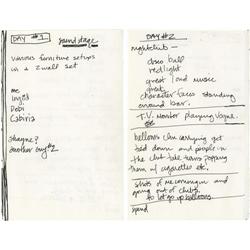 DAY #1 sound stage
various furniture setups
in a 2 wall set
me
Ingrid
Debi
Cabiria
Shayne?
another guy #2
DAY #2
nightclub -
disco ball
red light
great loud music
great
character faces standing
around bar.
T.V. Monitor playing Vogue.
balloons I'm carrying get
tied down and people in
the club take turns popping
them w/ cigarettes etc.
shots of me coming in and
going out of clubs.
to let go up balloons.